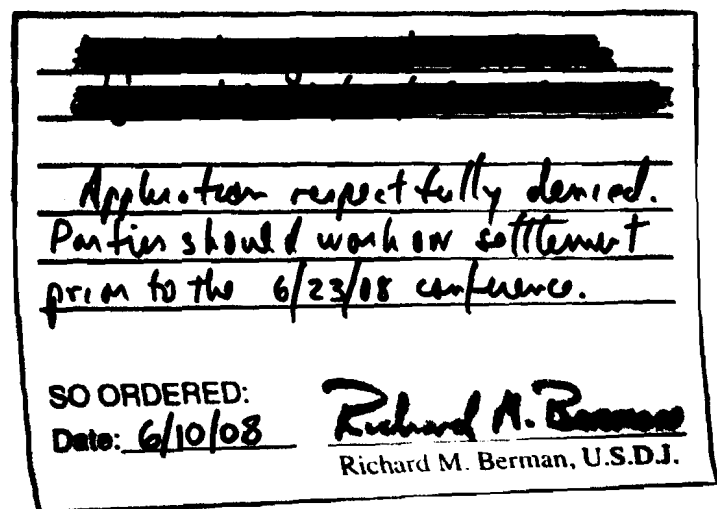 Application respectfully denied.
Parties should work on settlement
prior to the 6/23/08 conference.
SO ORDERED:
Date: 6/10/08
Richard M. Berman
Richard M. Berman, U.S.D.J.